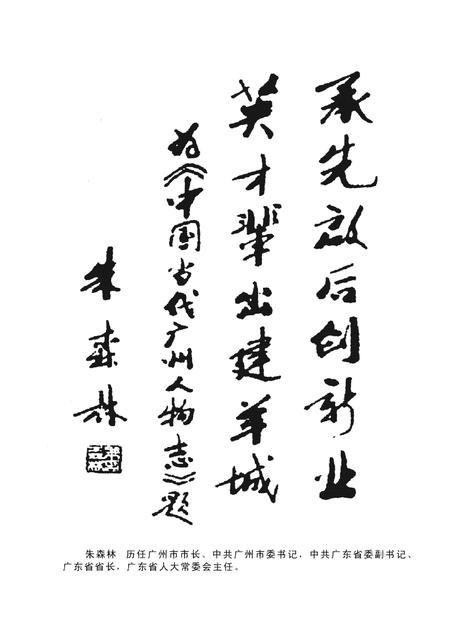 承先启后创新业
英才辈出建羊城
为《中国当代广州人物志》题
朱森林
朱森林 历任广州市市长、中共广州市委书记，中共广东省委副书记、
广东省省长，广东省人大常委会主任。